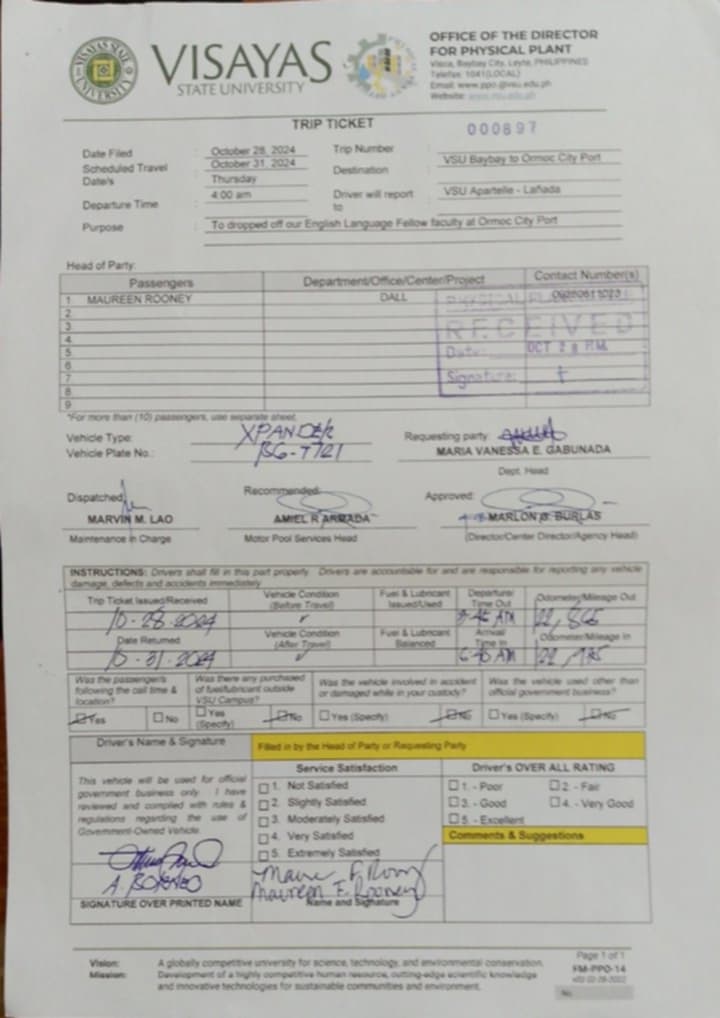 VISAYAS STATE UNIVERSITY
VISAYAS
STATE UNIVERSITY
OFFICE OF THE DIRECTOR
FOR PHYSICAL PLANT
Visca, Baybay City, Leyte, PHILIPPINES
Telefax: 1041(LOCAL)
Email: www.ppo@vsu.edu.ph
Website: www.vsu.edu.ph
TRIP TICKET
Date Filed : October 28, 2024 Trip Number : 000897
Scheduled Travel Date/s : October 31, 2024 Thursday Destination : VSU Baybay to Ormoc City Port
Departure Time : 4:00 am Driver will report to : VSU Apartelle - Lañada
Purpose : To dropped off our English Language Fellow faculty at Ormoc City Port
Head of Party:
Passengers Department/Office/Center/Project Contact Number(s)
1. MAUREEN ROONEY DALL
2.
3.
4.
5.
6.
7.
8.
9
PHYSICAL
RECEIVED
Date: OCT 28 P.M.
Signature:
*For more than (10) passengers, use separate sheet.
Vehicle Type: XPANDER Requesting party:
Vehicle Plate No.: MARIA VANESSA E. GABUNADA
Dept. Head
Dispatched: Recommended: Approved:
MARVIN M. LAO AMIEL R ARMADA MARLON G. BURLAS
Maintenance in Charge Motor Pool Services Head (Director/Center Director/Agency Head)
INSTRUCTIONS: Drivers shall fill in this part properly. Drivers are accountable for and are responsible for reporting any vehicle
damage, defects and accidents immediately
Trip Ticket Issued/Received Vehicle Condition (Before Travel) Fuel & Lubricant Issued/Used Departure/ Time Out Odometer/Mileage Out
10-28-2024 ✓
Date Returned Vehicle Condition (After Travel) Fuel & Lubricant Balanced Arrival Time In Odometer/Mileage In
10-31-2024 ✓
Was the passenger/s following the call time & location? Was there any purchased of fuel/lubricant outside VSU Campus? Was the vehicle involved in accident or damaged while in your custody? Was the vehicle used other than official government business?
Yes No Yes (Specify) No Yes (Specify) No Yes (Specify) No
Driver's Name & Signature Filled in by the Head of Party or Requesting Party
Service Satisfaction Driver's OVER ALL RATING
This vehicle will be used for official
government business only. I have
reviewed and complied with rules &
regulations regarding the use of
Government-Owned Vehicle.
1. Not Satisfied
2. Slightly Satisfied
3. Moderately Satisfied
4. Very Satisfied
5. Extremely Satisfied
1. - Poor 2. - Fair
3. - Good 4. - Very Good
5. - Excellent
Comments & Suggestions
Maureen F. Rooney
SIGNATURE OVER PRINTED NAME Name and Signature
Vision: A globally competitive university for science, technology, and environmental conservation.
Mission: Development of a highly competitive human resource, cutting-edge scientific knowledge
and innovative technologies for sustainable communities and environment.
Page 1 of 1
FM-PPO-14
No.